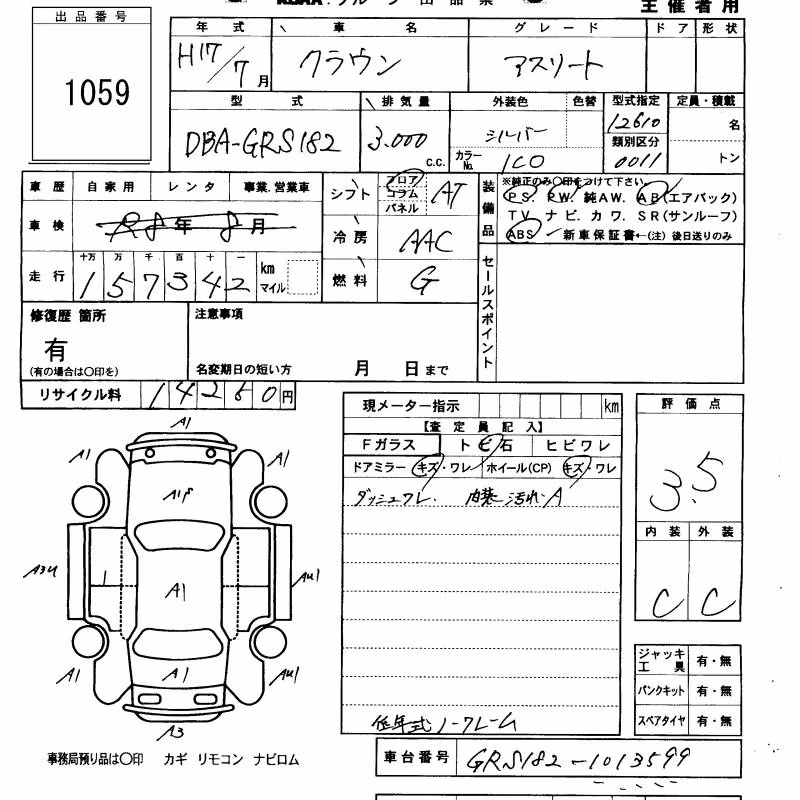 出品番号
1059
主催者用
年式 車名 グレード ドア 形状
H17/7月 クラウン アスリート
型式 排気量 外装色 色替 型式指定 定員・積載
DBA-GRS182 3.000 c.c. シルバー 12610 名
カラーNo. 1C0 類別区分 0011 トン
車歴 自家用 レンタ 事業.営業車
シフト フロア コラム パネル AT
装備品 ※純正のみ○印をつけて下さい
PS. PW. 純AW. AB(エアバック)
TV ナビ. カワ. SR(サンルーフ)
ABS 新車保証書←(注) 後日送りのみ
車検 R8年 8月
冷房 AAC
走行 十万 万 千 百 十 一
157342 km マイル
燃料 G
セールスポイント
修復歴 箇所 注意事項
有
(有の場合は○印を) 名変期日の短い方 月 日まで
リサイクル料 14260円
現メーター指示 km
【査定員記入】
Fガラス トビ石 ヒビワレ
ドアミラー キズ・ワレ ホイール(CP) キズ・ワレ
ダッシュワレ. 内装汚れ.A
低年式ノークレーム
評価点
3.5
内装 外装
C C
A1
A1 A1
A1
A3U AU1
A1
A1 A1 AU1
A3
ジャッキ工具 有・無
パンクキット 有・無
スペアタイヤ 有・無
事務局預り品は○印 カギ リモコン ナビロム
車台番号 GRS182-1013599